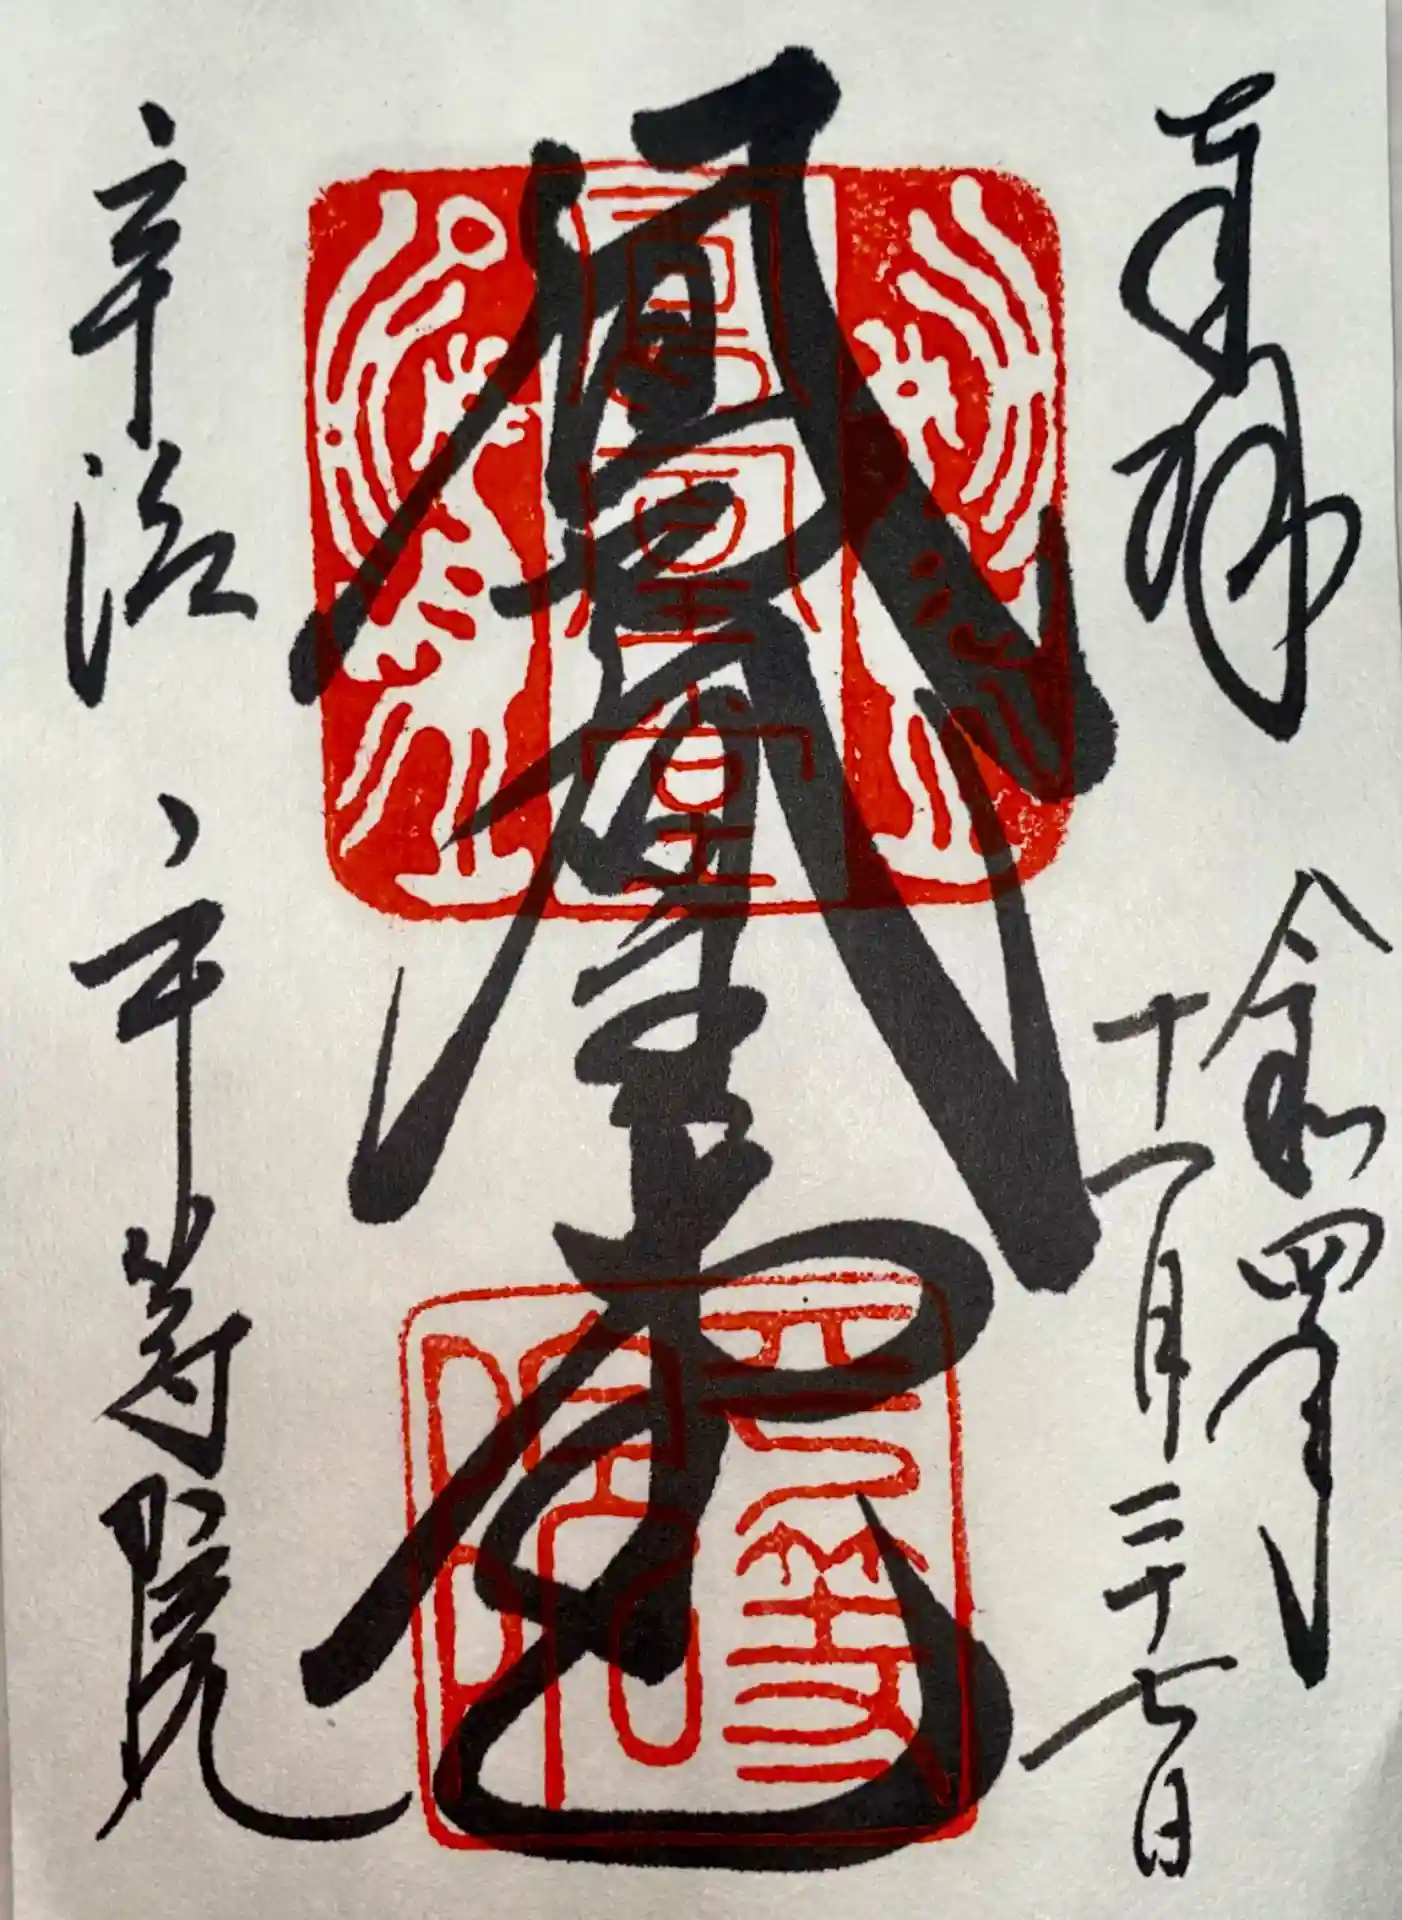 奉拝
令和四年
十一月二十七日
鳳凰堂
鳳凰堂
平等
院印
宇治 平等院